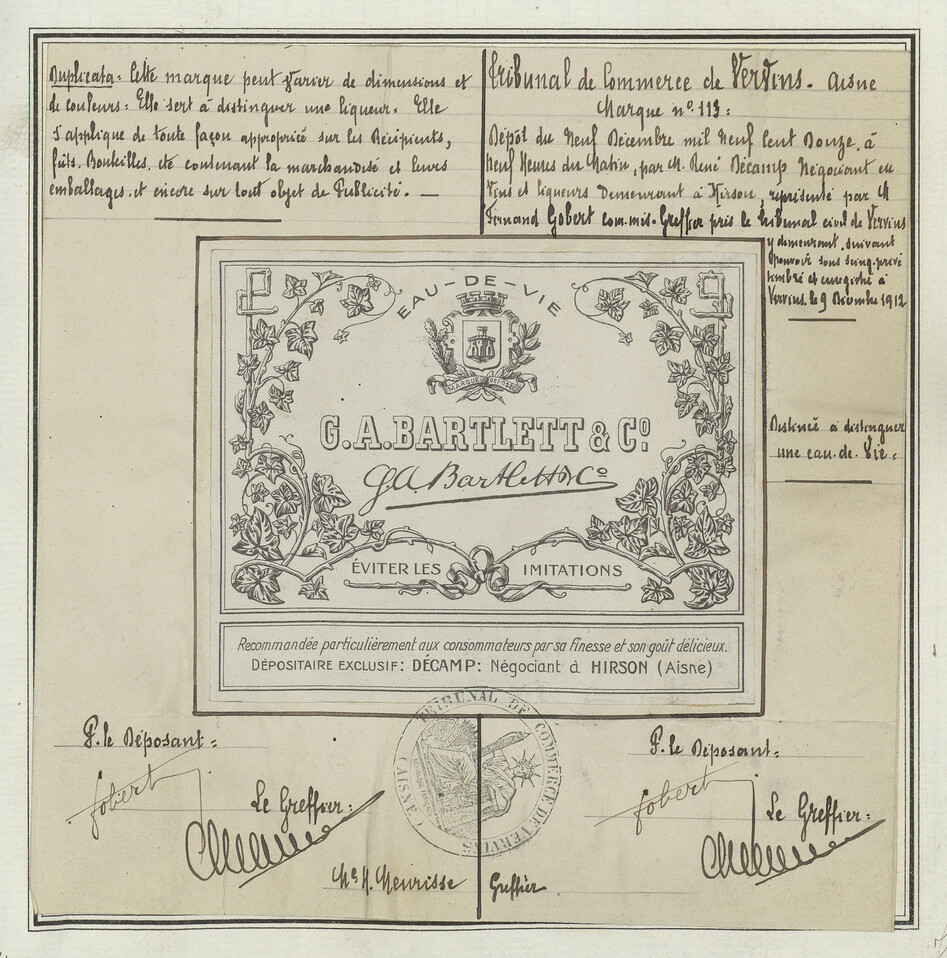 Duplicata = Cette marque peut varier de dimensions et
de couleurs = Elle sert à distinguer une liqueur = Elle
s'applique de toute façon appropriée sur les Récipients,
fûts, Bouteilles, etc contenant la marchandise et leurs
emballages, et encore sur tout objet de Publicité. —
Tribunal de Commerce de Vervins - Aisne
Marque n° 113 =
Dépot du Neuf Décembre mil Neuf Cent Douze, à
Neuf Heures du Matin, par M. René Décamp Négociant en
Vins et liqueurs Demeurant à Hirson, représenté par M
Fernand Gobert commis-Greffier près le tribunal civil de Vervins
y demeurant, suivant
pouvoir sous seing-privé
timbré et enregistré à
Vervins, le 9 Décembre 1912
Destinée à distinguer
une eau-de-Vie =
EAU-DE-VIE
MARQUE DEPOSEE
G.A.BARTLETT & Cº
G.A. Bartlett & Cº
ÉVITER LES IMITATIONS
Recommandée particulièrement aux consommateurs par sa finesse et son goût délicieux.
DÉPOSITAIRE EXCLUSIF: DÉCAMP: Négociant à HIRSON (Aisne)
TRIBUNAL DE COMMERCE DE VERVINS
(AISNE)
P. le Déposant =
Gobert
Le Greffier =
P. le Déposant =
Gobert
Le Greffier =
Me H. Meurisse Greffier